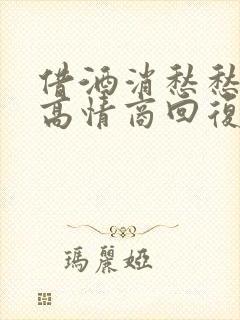 借酒消愁愁
高情商回復
瑪麗婭